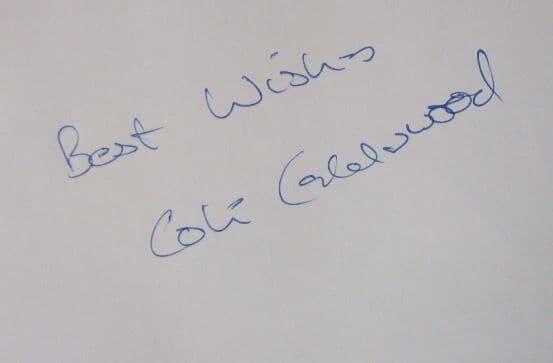 Best Wishes
Colin Calderwood